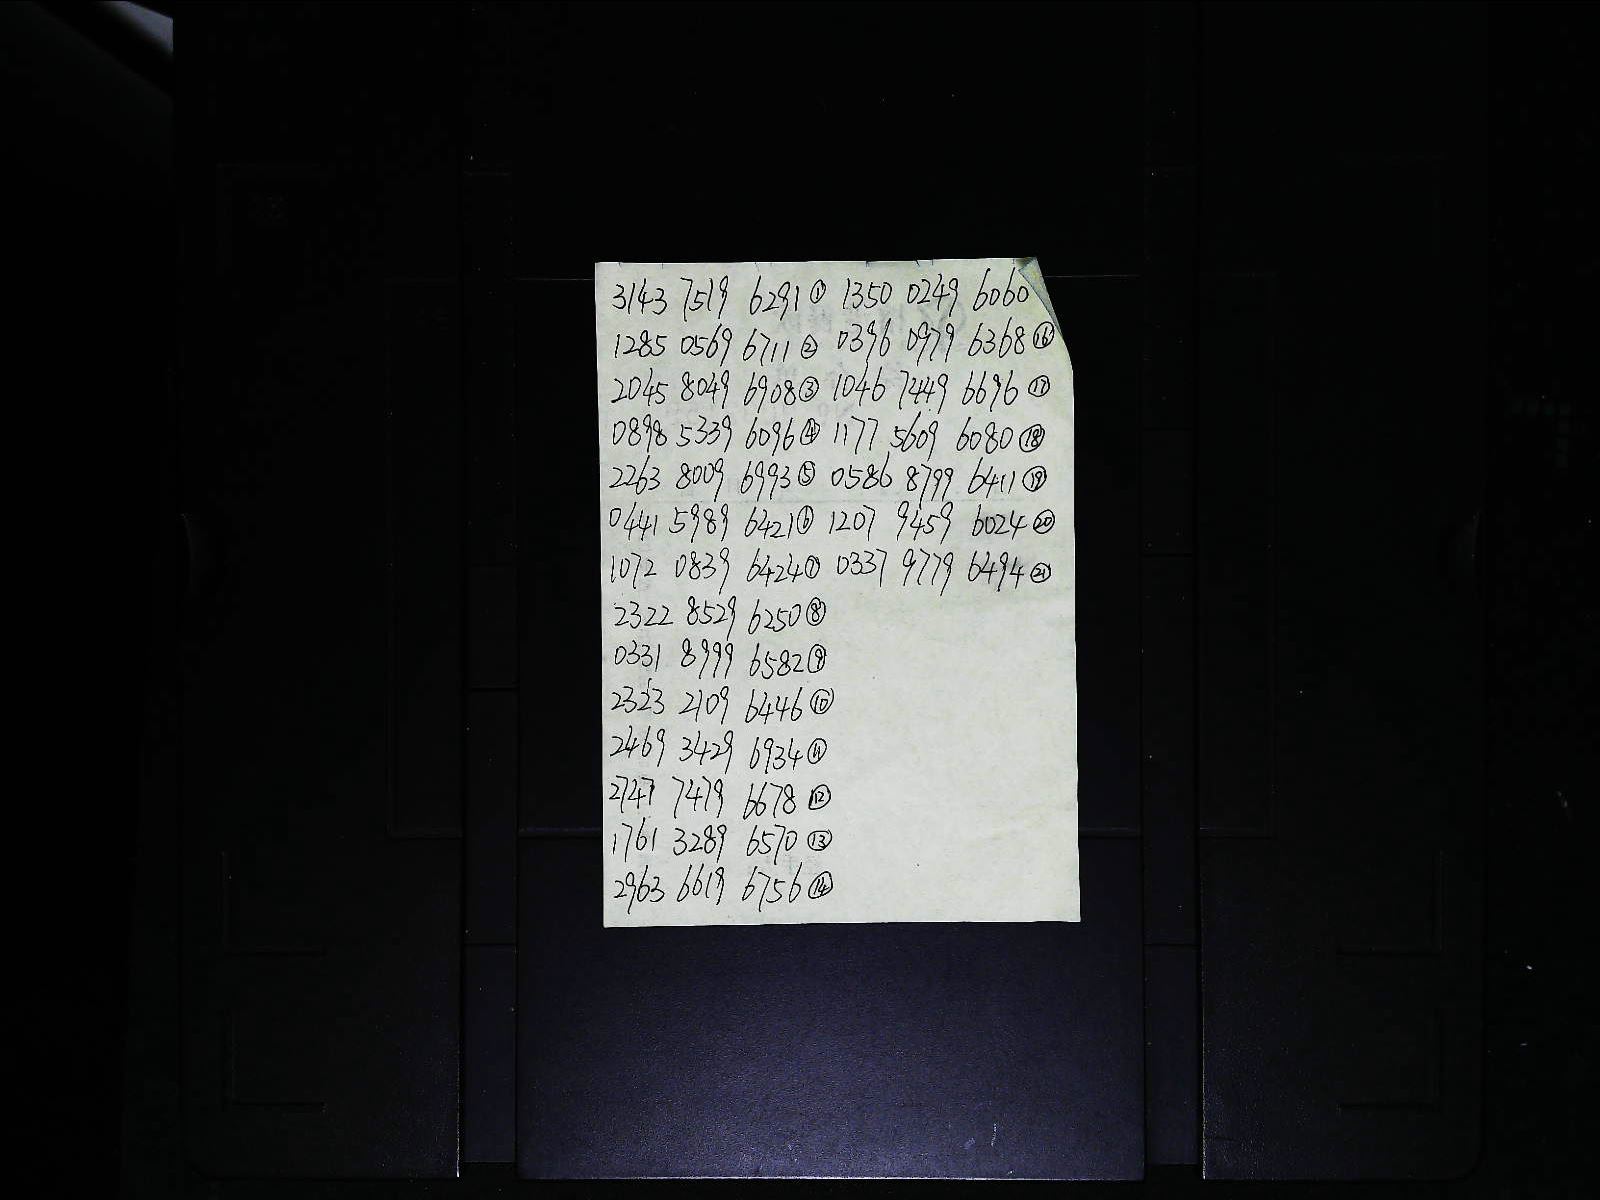 3143 7519 6291 ① 1350 0249 6060
1285 0569 6711 ② 0396 0979 6368 ⑯
2045 8049 6908 ③ 1046 7449 6696 ⑰
0898 5339 6096 ④ 1177 5609 6080 ⑱
2263 8009 6993 ⑤ 0586 8799 6411 ⑲
0441 5989 6421 ⑥ 1207 9459 6024 ⑳
1072 0839 6424 ⑦ 0337 9779 6494 ㉑
2322 8529 6250 ⑧
0331 8999 6582 ⑨
2323 2109 6446 ⑩
2469 3429 6934 ⑪
2747 7479 6678 ⑫
1761 3289 6570 ⑬
2963 6619 6756 ⑭